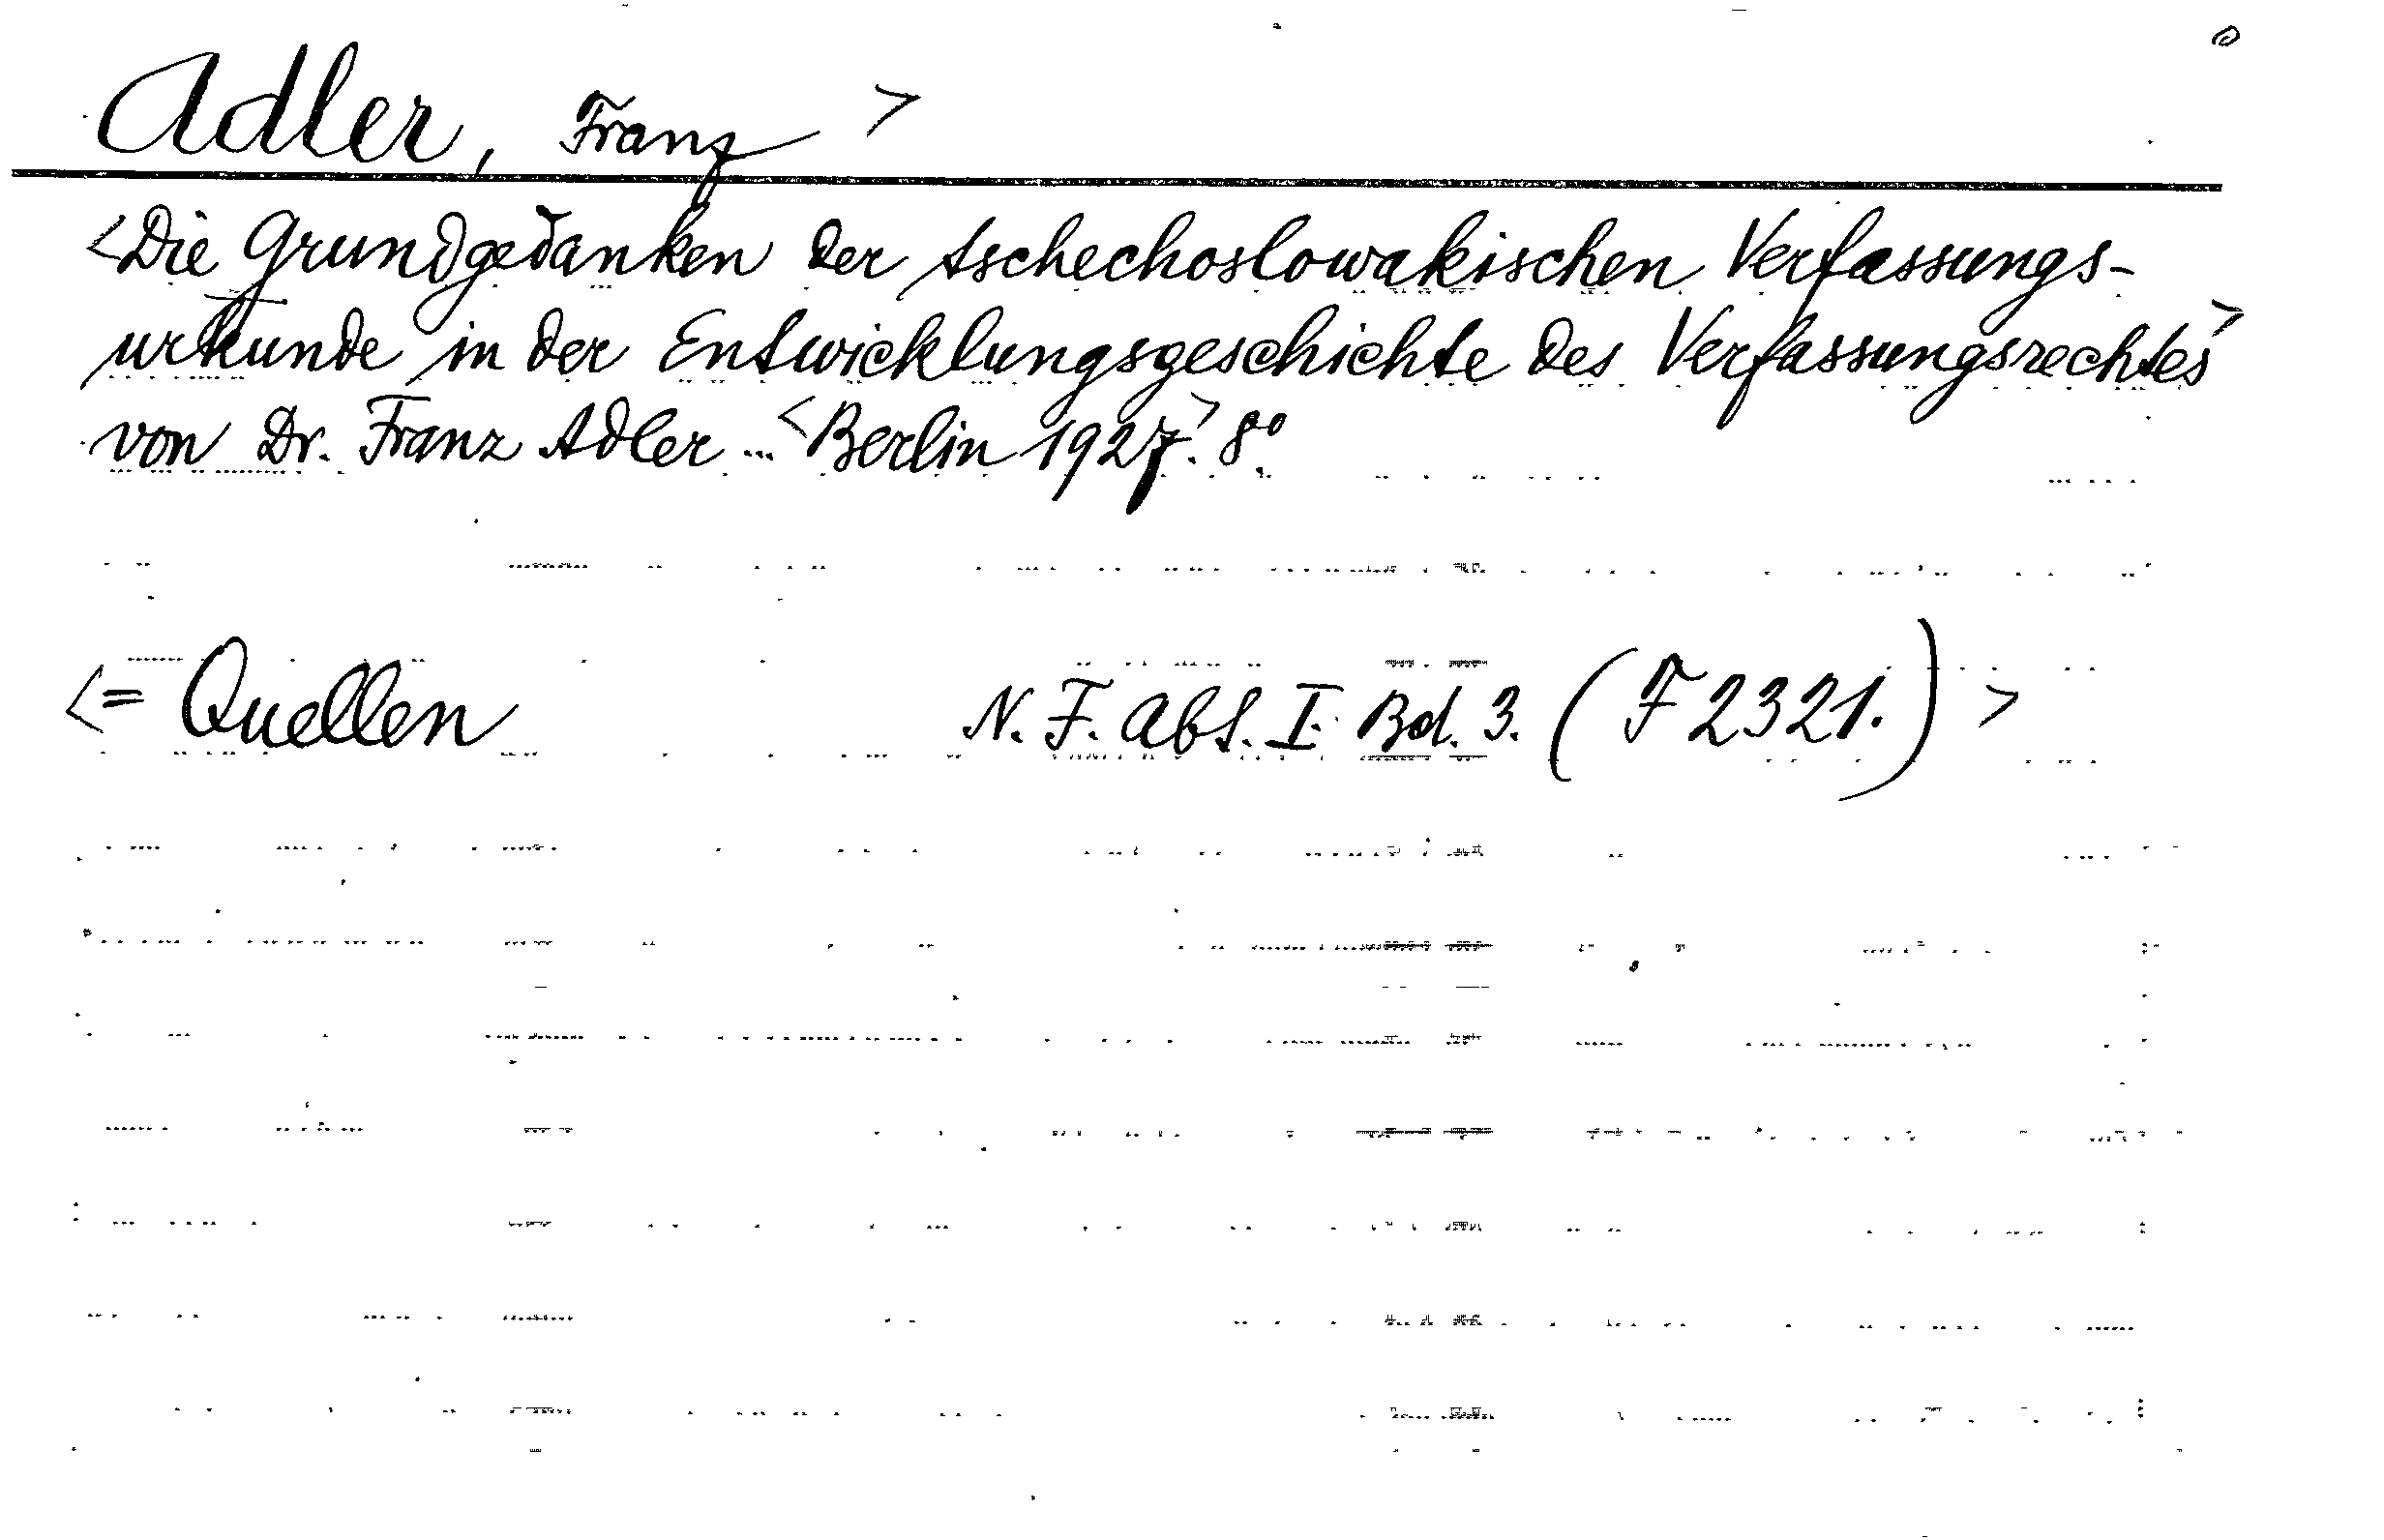 Adler, Franz >
<Die Grundgedanken der tschechoslowakischen Verfassungs-
urkunde in der Entwicklungsgeschichte des Verfassungsrechtes>
von Dr. Franz Adler ... <Berlin 1927>. 8°.
<= Quellen N. F. Abt. I. Bd. 3. (F 2321.) >